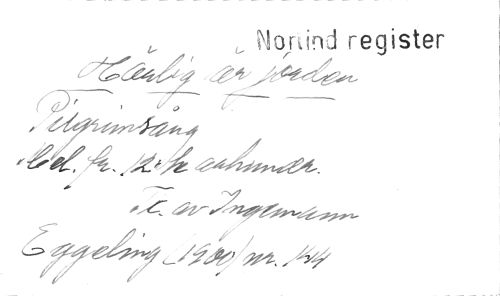 Norlind register
Härlig är jorden
Pilgrimsång
Mel. fr. 12:te århundr.
Tr. av Ingemann
Eggeling (1900) nr. 144